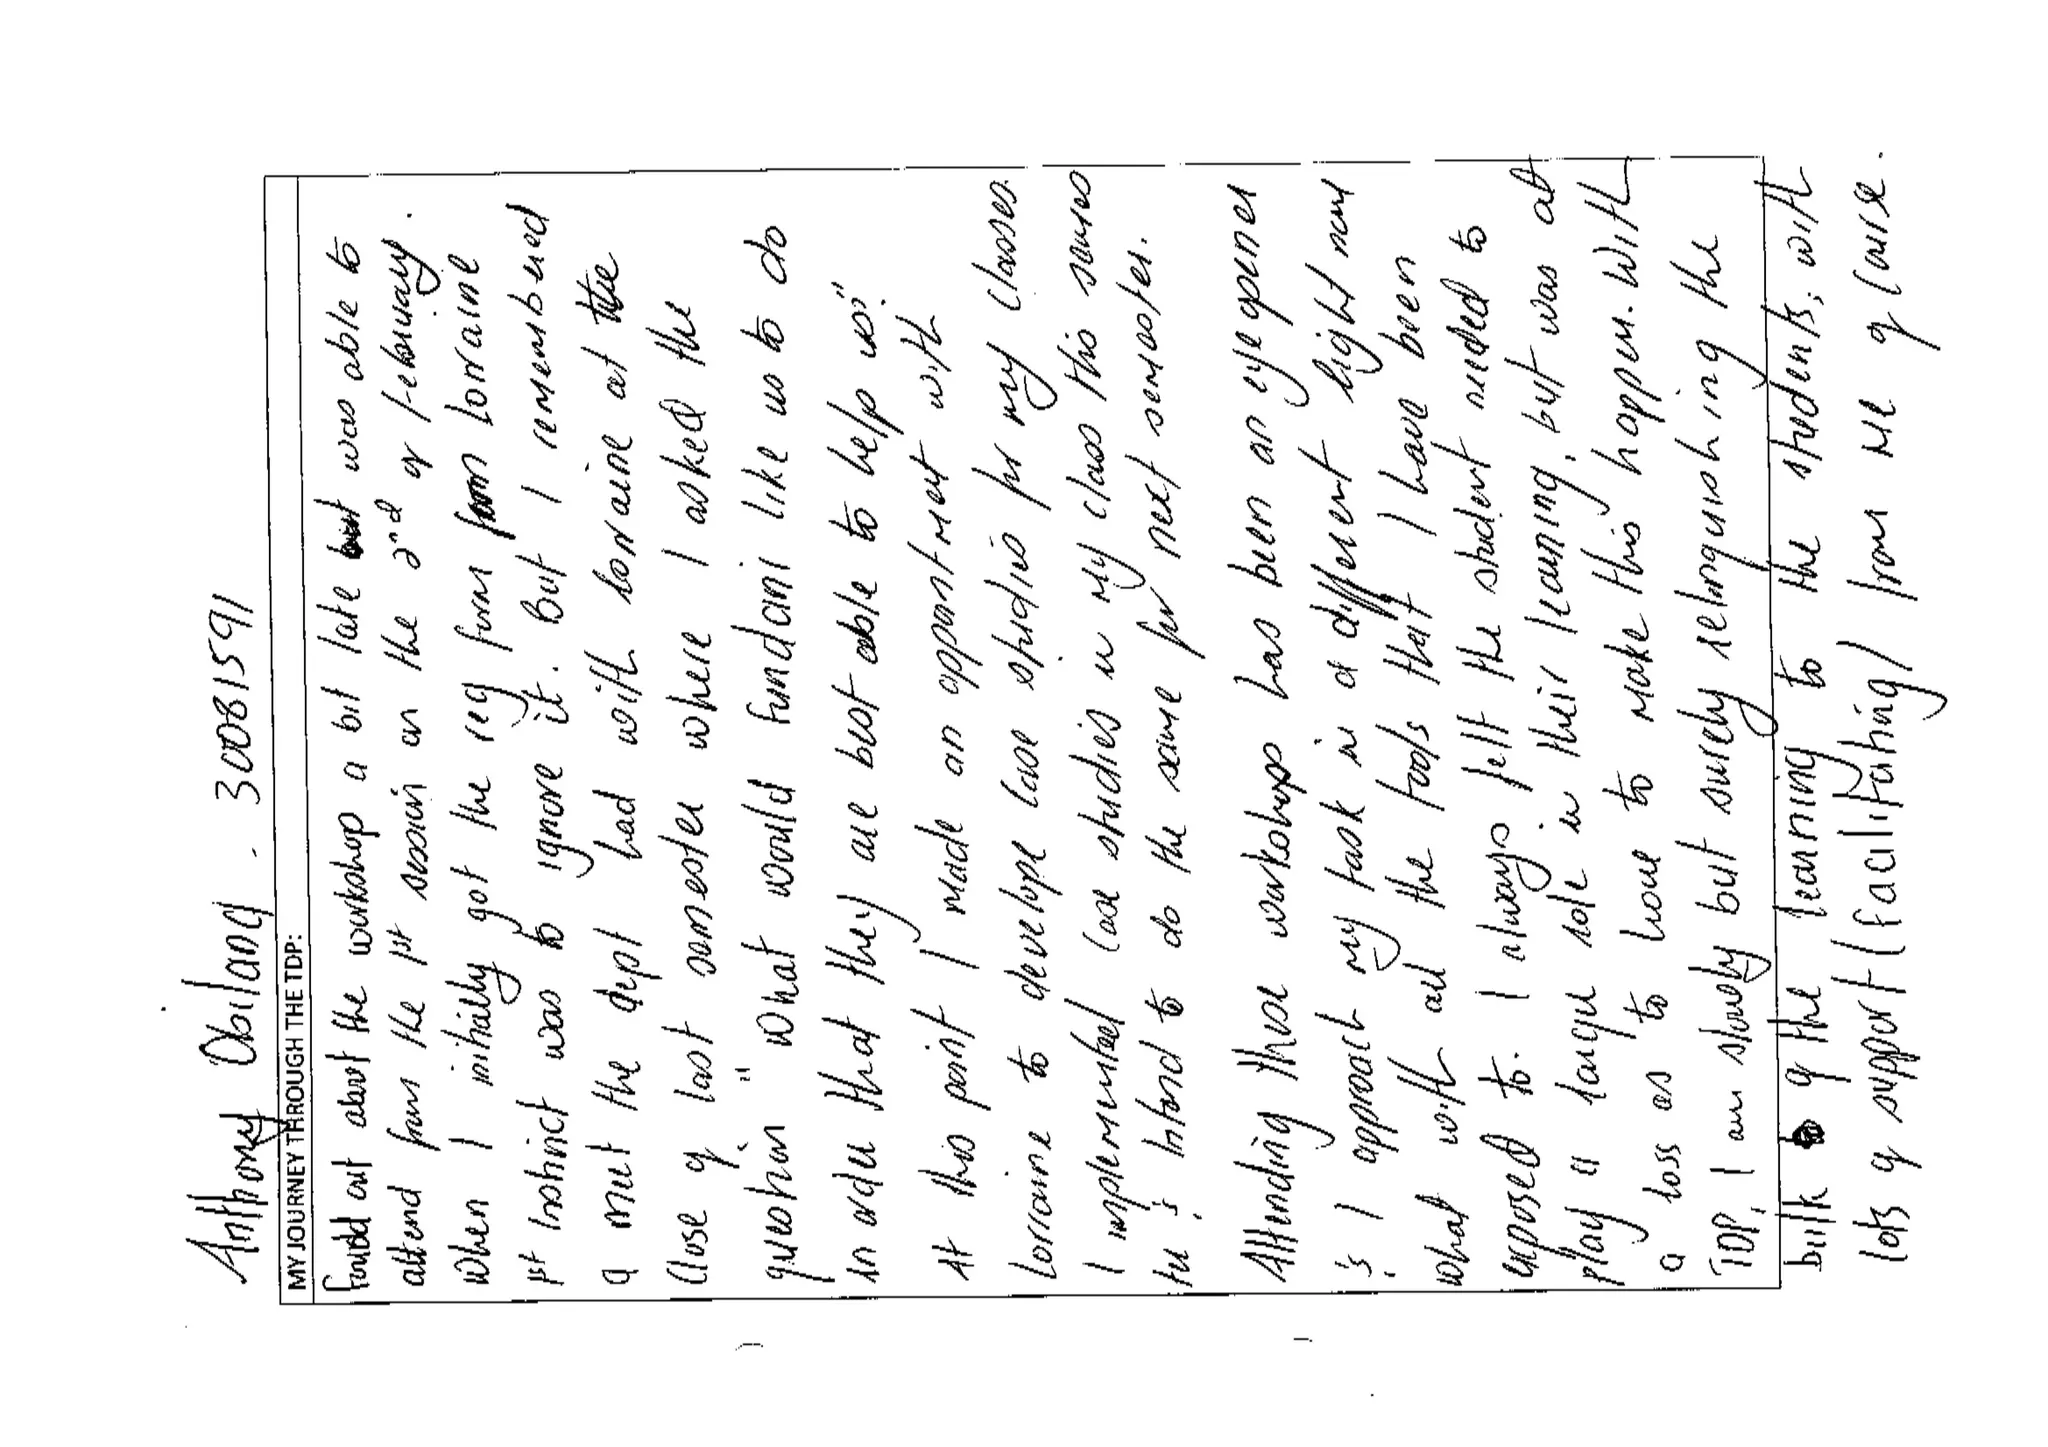 Anthony Obilana - 30081591
MY JOURNEY THROUGH THE TDP:
Found out about the workshop a bit late but was able to
attend from the 1st session on the 2nd of february.
When I initially got the reg form from Lorraine
1st instinct was to ignore it. But I remembered
a meet the dept had with Lorraine at the
Close of last semester where I asked the
question " What would Fundani like us to do
in order that they are best able to help us".
At this point I made an appointment with
Lorraine to develope case studies for my classes.
I implemented case studies in my class this semes
ter & intend to do the same for next semester.
Attending these workshops has been an eye opener
& I approach my task in a different light now
what with all the tools that I have been
exposed to. I always felt the student needed to
play a larger role in their learning, but was at
a loss as to how to make this happen. With
TDP, I am slowly but surely relinquishing the
bulk of the learning to the students, with
lots of support (facilitating) from me of course.